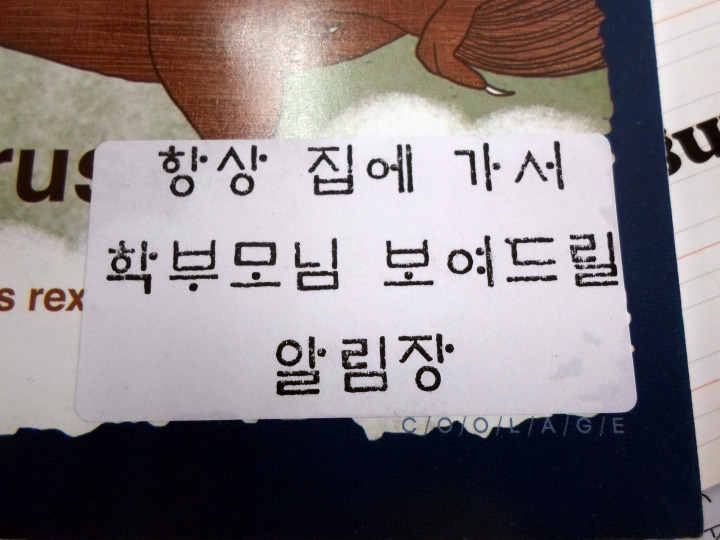 항상 집에 가서
학부모님 보여드릴
알림장
rus
s rex
C/O/O/L/A/G/E
su